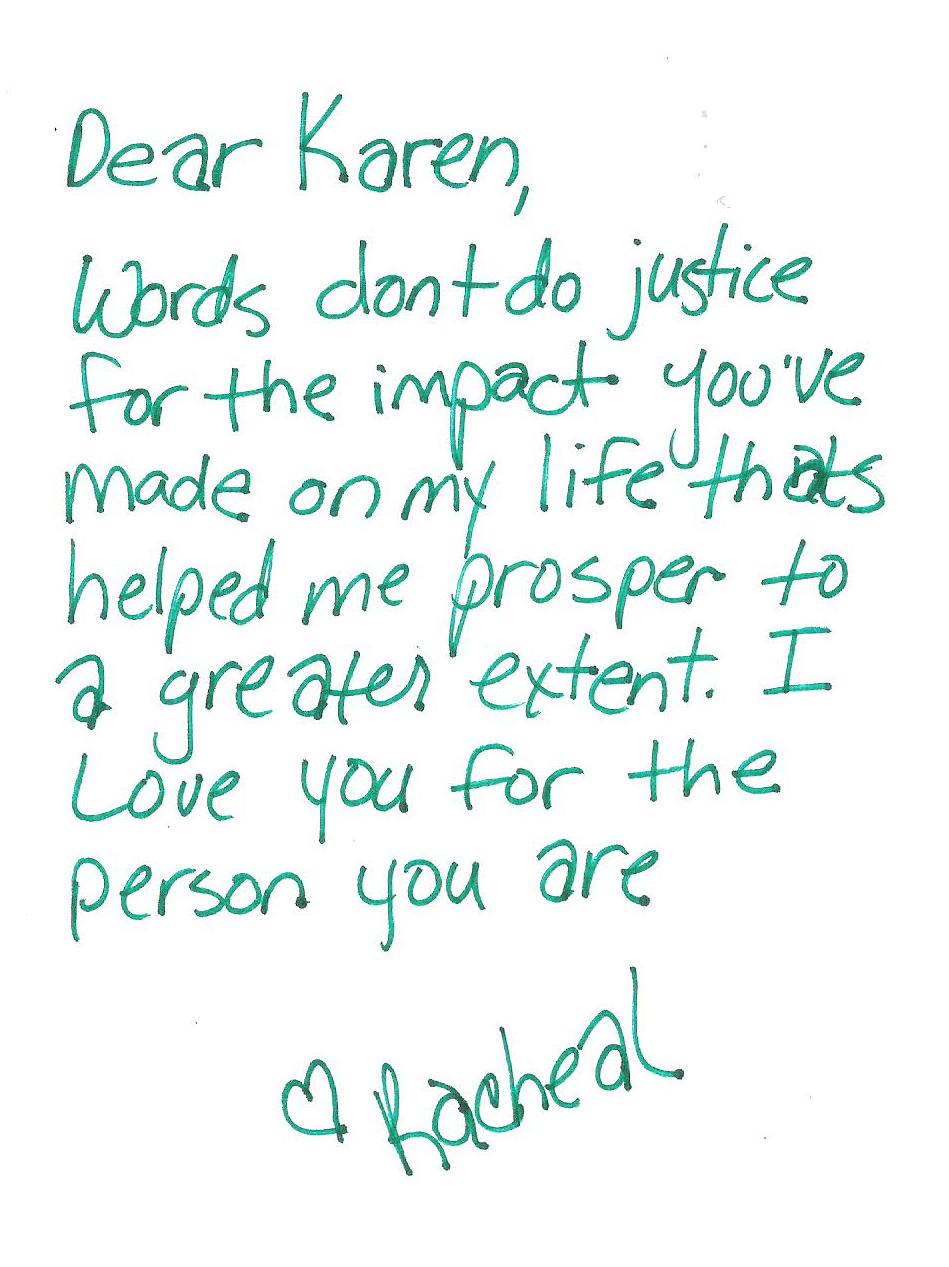 Dear Karen,
Words dont do justice
for the impact you've
made on my life thats
helped me prosper to
a greater extent. I
Love you for the
person you are
♡ Racheal